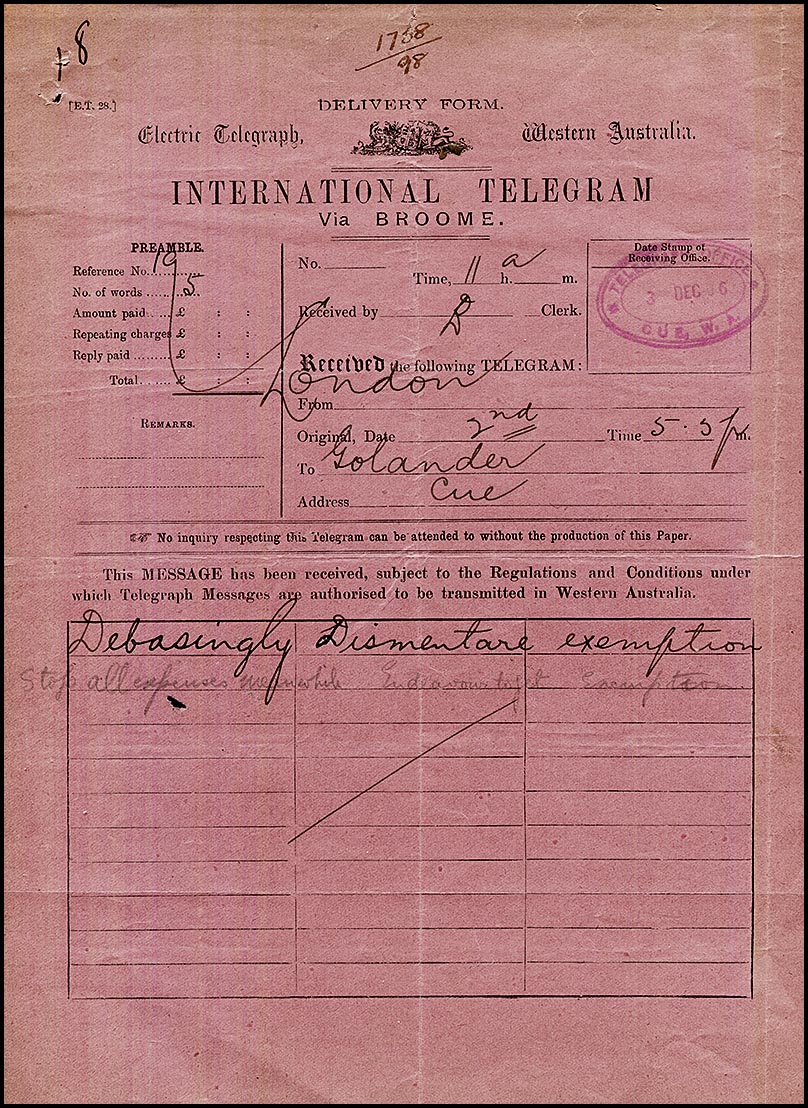 8
1788
98
[E.T. 28.]
DELIVERY FORM.
Electric Telegraph, Western Australia.
INTERNATIONAL TELEGRAM
Via BROOME.
PREAMBLE.
Reference No. 19
No. of words 5
Amount paid £ : :
Repeating charges £ : :
Reply paid £ : :
Total £ : :
REMARKS.
No.
Time, 11 h. a m.
Received by Clerk.
Received the following TELEGRAM:
London
From
Original, Date 2nd Time 5.5 pm.
To Golander
Address Cue
Date Stamp of
Receiving Office.
TELEGRAPH OFFICE
3 DEC 96
CUE, W.A.
No inquiry respecting this Telegram can be attended to without the production of this Paper.
This MESSAGE has been received, subject to the Regulations and Conditions under
which Telegraph Messages are authorised to be transmitted in Western Australia.
Debasingly Dismentare exemption
Stop all expenses meanwhile Endeavour to get Exemption